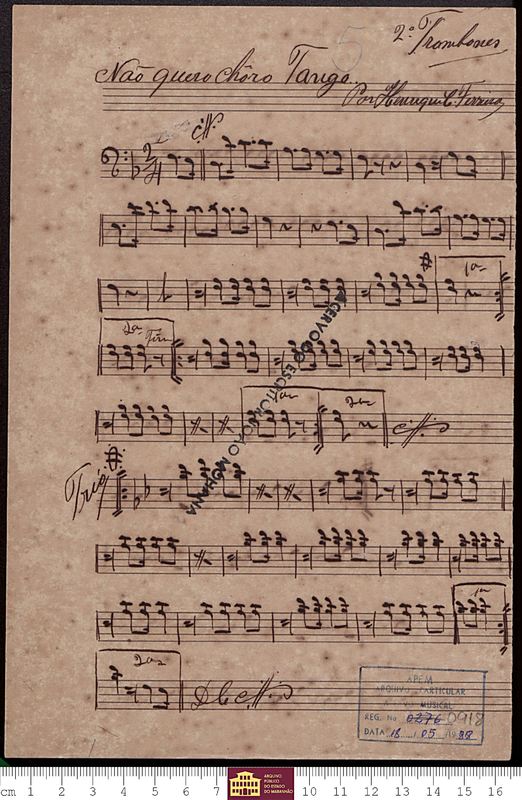 5
2ºs Trombones
Não quero chôro Tango.
Por Henrique C. Ferreira
2/4
1a
2a Fim
1a 2a
Trio
1a
2a
D.C.
ACERVO DO ESCRITOR NONATO MOHANA
APEM
ARQUIVO PARTICULAR
MUSICAL
REG. No 0276 0918
DATA 18 / 05 / 1988
cm 1 2 3 4 5 6 7 8 9 10 11 12 13 14 15 16
ARQUIVO
PÚBLICO
DO ESTADO
DO MARANHÃO